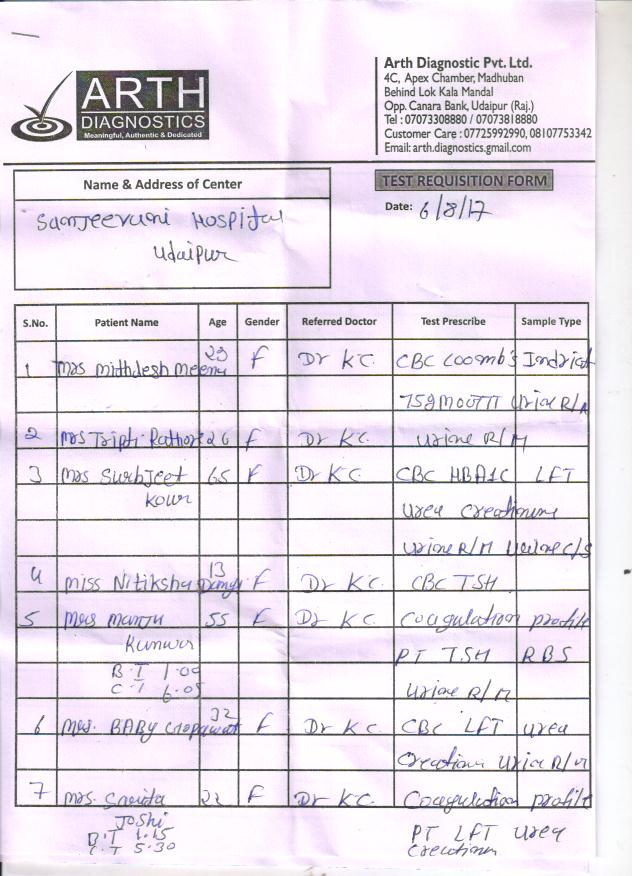 ARTH
DIAGNOSTICS
Meaningful, Authentic & Dedicated
Arth Diagnostic Pvt. Ltd.
4C, Apex Chamber, Madhuban
Behind Lok Kala Mandal
Opp. Canara Bank, Udaipur (Raj.)
Tel : 07073308880 / 07073818880
Customer Care : 07725992990, 08107753342
Email: arth.diagnostics.gmail.com
Name & Address of Center
TEST REQUISITION FORM
Sanjeevani Hospital
Udaipur
Date: 6/8/17
S.No. Patient Name Age Gender Referred Doctor Test Prescribe Sample Type
1 Mrs Mithlesh Meena 23 F Dr KC. CBC Coomb's Indrict
75gm Urine R/M
2 Mrs Tripti Rathor 26 F Dr KC. Urine R/M
3 Mrs Surbjeet 65 F Dr KC. CBC HBA1C LFT
Kour Urea Creatinine
Urine R/M Urine C/S
4 Miss Nitiksha 13 F Dr KC. CBC TSH
5 Mrs Manju 55 F Dr KC. Coagulation profile
Kunwar PT TSH RBS
B.T 1.00
C.T 6.05 Urine R/M
6 Mrs. BABY 32 F Dr KC. CBC LFT Urea
Creatinine Urine R/M
7 Mrs. 22 F Dr KC. Coagulation profile
Joshi PT LFT Urea
B.T 1.15
C.T 5.30 Creatinine